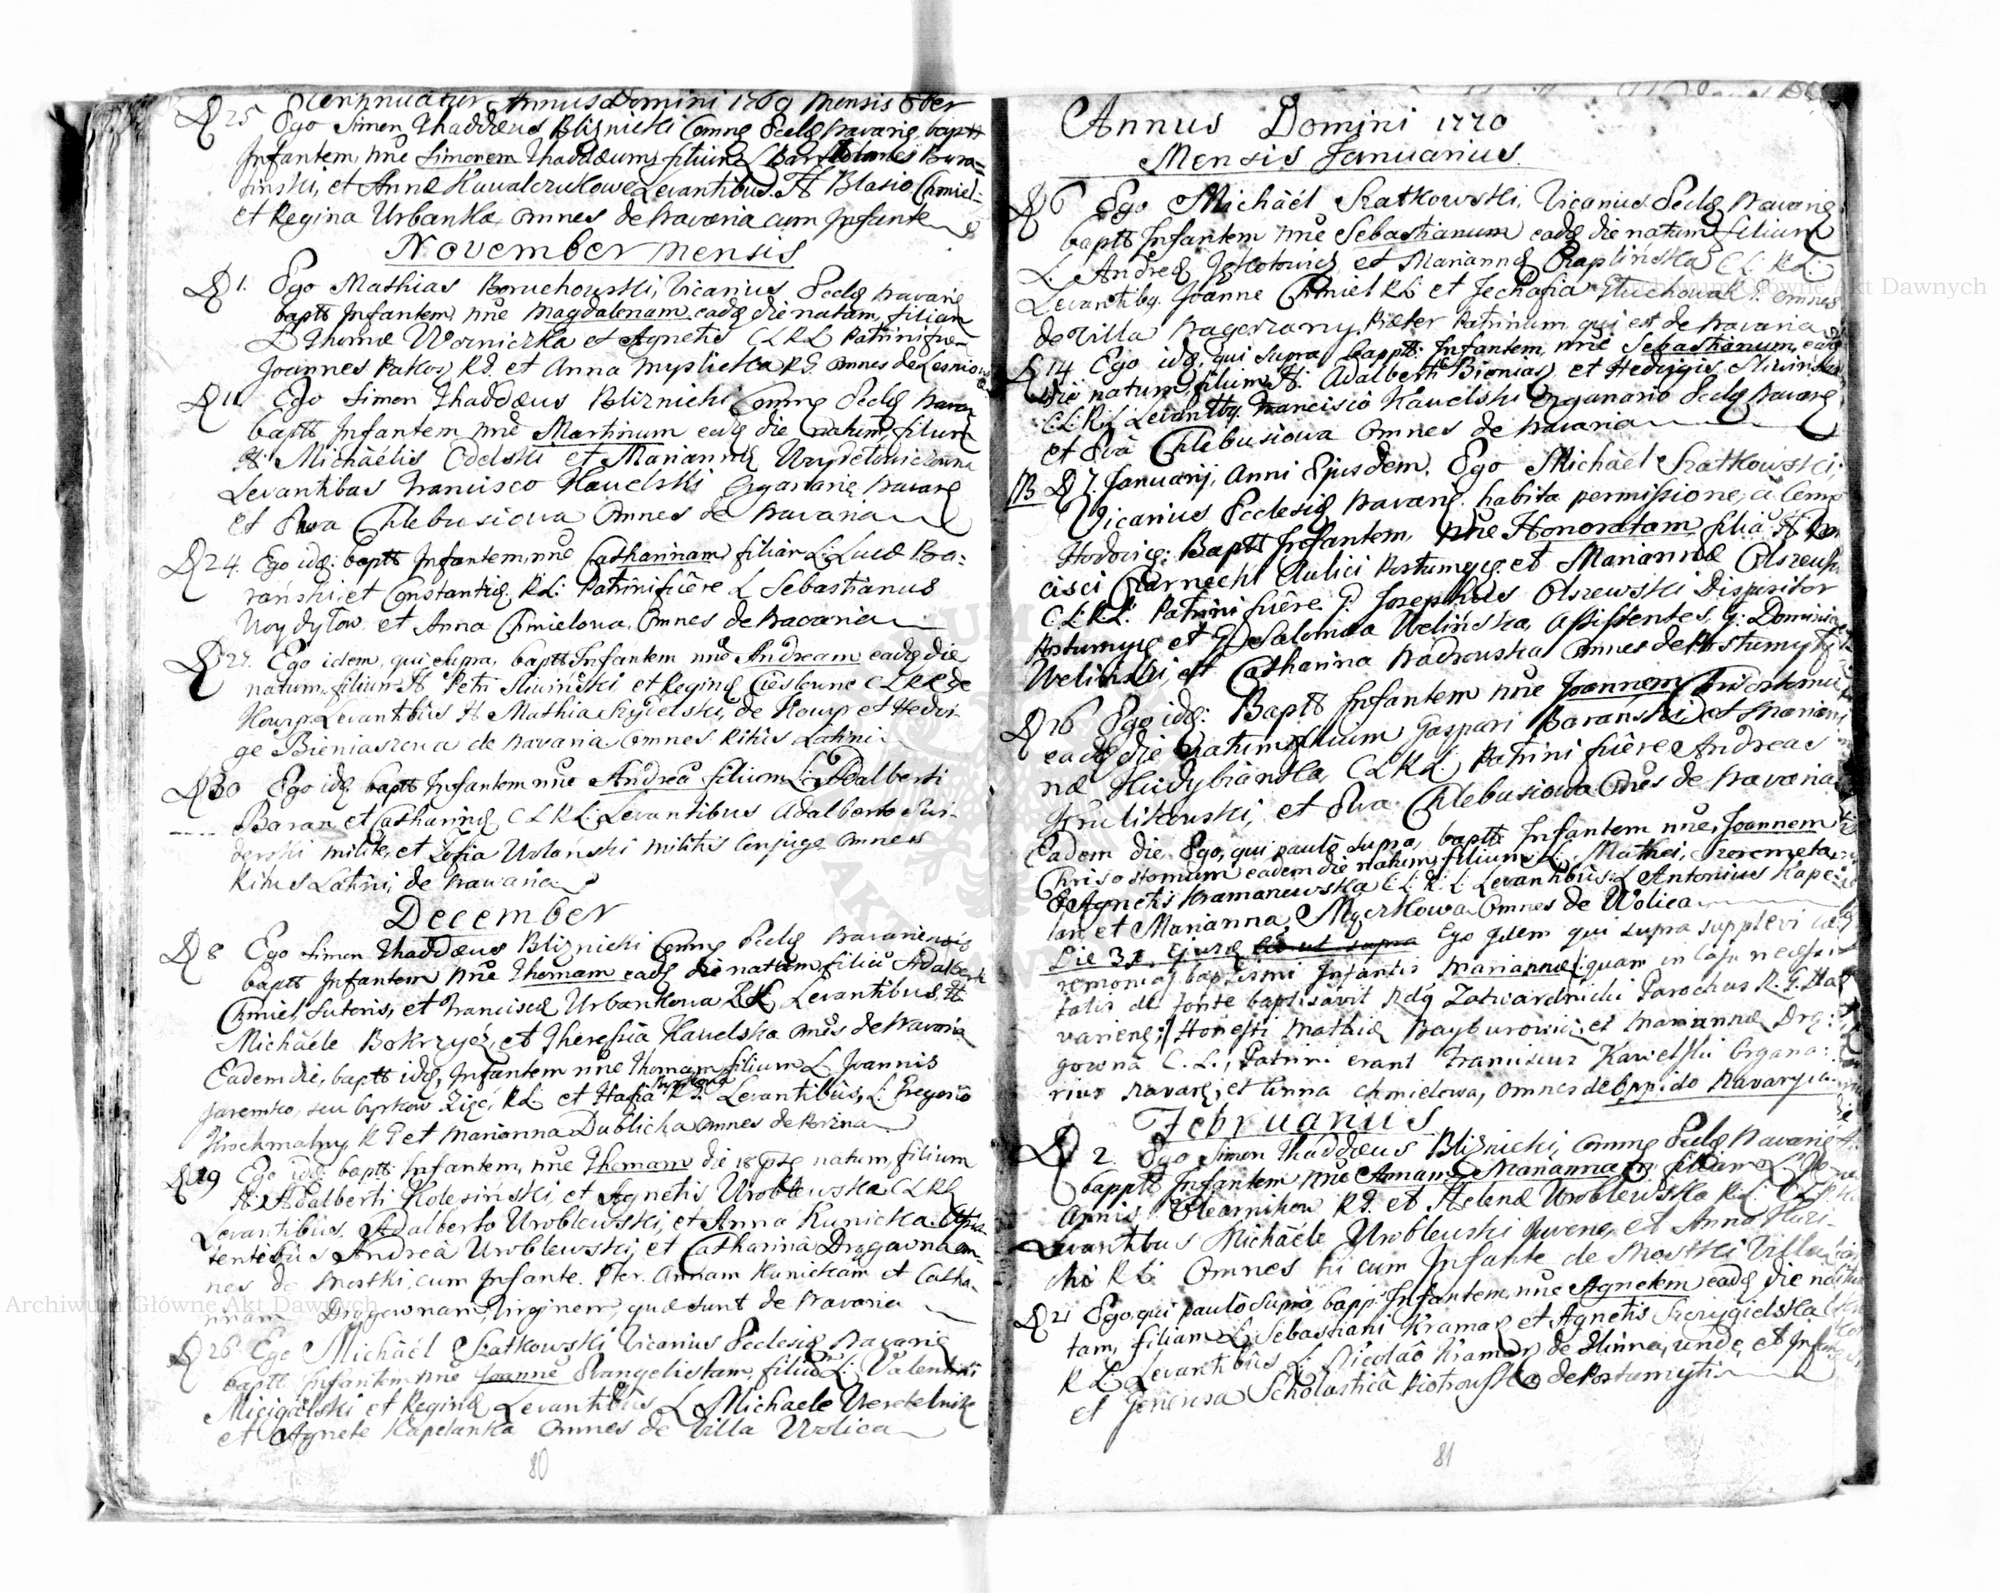 Continuatur Annus Domini 1769 Mensis 8ber
D 25 Ego Simon Thaddæus Bliznicki Commę Ecclę Navarię baptt
Infantem nne Simonem Thaddæum, filium L Bartholomei Bura=
finski, et Annæ Kowalczukowe Levantibus H Blasio Chmiel=
et Regina Urbanka omnes de Navaria cum Infante
November mensis
D 1. Ego Mathias Boruchowski, Vicarius Ecclę Navarię
baptt Infantem, nne Magdalenam eadę die natam, filiam
L Thomæ Worniczka et Agnetis CLRL Patrini fue=
Joannes Patkos RG. et Anna Myslicka RG omnes de Lesniowi
D 11 Ego Simon Thaddæus Bliznicki Commę Ecclę Navar
baptt Infantem nne Martinum eadę die natum, filium
H. Michäelis Odelski et Mariannę Woydetowiczowna
Levantibus Francisco Kawelski Organarię Navarę
et Ewa Chlebusiowa Omnes de Navaria
D 24. Ego idę: baptt Infantem, nne Catharinam filiam L: Lucæ Ba=
ranski, et Constantię RL: Patrini fuêre L Sebastianus
Woydytow et Anna Chmielowa, Omnes de Navaria
D 27. Ego idem, qui supra, baptt Infantem nne Andream eadę die
natum, filium H Petri Sliwinski et Reginę Cieslowne CLRL de
Howyr Levantibus H Mathia Szydelski, de Howyr et Hedvi-
ge Bieniaszowa de Navaria Omnes Ritûs Latini
D 30 Ego idę baptt Infantem nne Andreã filium L: Adalberti
Baran et Catharinę CLRL Levantibus Adalberto Swi-
derski milite, et Zofia Wolański militis Conjuge omnes
Ritus Latini, de Navaria
December
D 8 Ego Simon Thaddæus Bliznicki Commę Ecclę Navariensis
baptt Infantem nne Thomam eadę die natum filiũ Adalberti
Chmiel Sutoris, et Franciscæ Urbankowa RL Levantibus, H
Michäele Bokrzyć, et Theressia Kawelska omes de Navaria
Eadem die, baptt idę, Infantem nne Thomam filium L Joannis
Jaremko, seu Cyrkow Zięć, RL et Hasia RG. Levantibus, L Gregorio
Krochmalny RG et Marianna Dublicka omnes de Porzna
D 19 Ego idę: baptt: Infantem, nne Thomam die 18 ptę natum, filium
H Adalberti Kolesiński, et Agnetis Wroblewska CLRL
Levantibus, Adalberto Wroblewski, et Anna Kunicka. Assis=
tentibus Andreâ Wroblewski, et Catharinâ Drogowna om=
nes de Mostki, cum Infante. Pter. Annam Kunickam et Catha=
rinam Drogownam, Virginem, quæ sunt de Navaria
D 26 Ego Michäel Szatkowski Vicarius Ecclesię Navarię
baptt Infantem nne Joanne Evangelistam, filiũ L: Valentini
Micigalski et Reginæ Levantibus L Michaele Weretelnik
et Agnete Kapelanka Omnes de Villa Wolica
80
Annus Domini 1770
Mensis Januarius.
D 6 Ego Michäel Szatkowski, Vicarius Ecclę Navarię
baptt Infantem nne Sebastianum eadę die natum filium
L: Andreę Ignotowicz et Mariannę Czaplińska CL: RL:
Levantibg. Joanne Chmiel RL: et Jechasia Gluchowak G. omnes
de Villa Nagorzany, Præter Patrinum qui est de Navaria
D 14 Ego idę, qui supra baptt: Infantem, nne Sebastianum, eadę
die natum, filium H: Adalberti Bienias et Hedvigis Sliwinska
CL. RL Levantbg. Francisco Kawelski Organario Ecclę Navarę
et Evâ Chlebusiowa Omnes de Navaria
NB D 7. Januarij, Anni Ejusdem. Ego Michäel Szatkowski,
Vicarius Ecclesię Navarię habita permissione, à Comm
Hodovicę: Baptt Infantem, nne Honoratam filiã H Fran
cisci Czarnecki Aulici Postumyę et Mariannæ Olszewsk
CLRL. Patrini fuêre G. Josephus Olszewski Dispositor
Postumyę et G Salomea Welińska, Assistentes, G: Dominic
Weliński, et Catharina Nadrowska Omnes de Postumyty
D 26 Ego idę: Baptt Infantem nne Joannem Chrisostomu
eadę die natum, filium Gaspari Baranski et Marian
næ Hudybianka, CLRL Patrini fuêre Andreas
Krulikowski, et Eva Chlebusiowa Omes de Navaria
Eadem die Ego, qui paulô supra, baptt Infantem nne, Joannem
Chrisostomum eadem die natum, filium L: Mathei, Szeremeta
& Agnetis Kramarewska CL R: L: Levantibus L Antonius Kape=
lan et Marianna Myczkowa Omnes de Wolica
Die 31 Ejusdę Ego Idem qui supra supplevi cæ
remonias baptismi Infantis Mariannæ quam in casu necessi
tatis de fonte baptisavit Rdę Zatwardnicki Parochus R. G. Na
varienę: Honesti Mathię Bayburowicz et Mariannæ Dro:
gowna C. L., Patrini erant Franciscus Kawelski Organa:
rius Navarę, et Anna Chmielowa, omnes de Oppido Navaryia
Februarius
D 2. Ego Simon Thaddæus Bliznicki, Commę Ecclę Navarię
bapptt Infantem nne Annam Mariannam filiam L Jo
annis Olearnikow RG. et Helenæ Wroblewska RL: CL
Levantibus Michäele Wroblewski Juvene, et Anna Kuni-
cki RL: Omnes hi cum Infante de Mostki Villa
D 21 Ego, qui paulò supra, bapp: Infantem, nne Agnetem eadę die na
tam, filiam L: Sebastiani Kramar et Agnetis Szczygielska
RL Levantibus L: Nicolao Kramar de Hlinna, unde, et Infans
et Generosa Scholasticâ Piotrowska de Postumyti
81
Archiwum Główne Akt Dawnych
Archiwum Główne Akt Dawnych